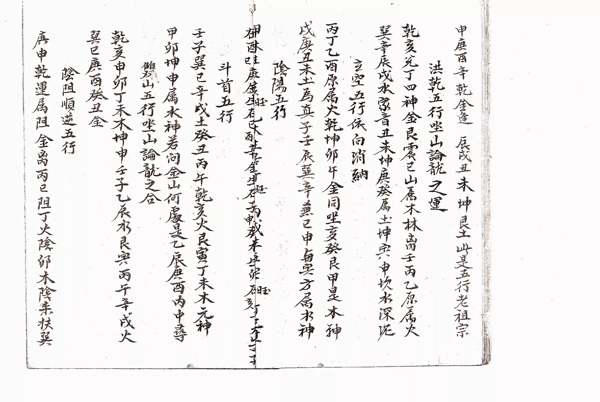 申庚酉辛乾金邊 辰戌丑未坤艮土 此是五行老祖宗
洪乾五行坐山論龍之運
乾亥兌丁四神金 艮震巳山屬木林 离壬丙乙原屬火
巽辛辰戌水 丑未坤庚癸屬土 坤 申坎水深泥
玄空五行依向消納
丙丁乙酉原屬火 乾坤卯午金同坐 亥癸艮甲是木神
戌庚丑未土為真 子壬辰巽辛兼巳 申與寅方屬水神
陰陽五行
斗首五行
壬子巽巳辛戌土 癸丑丙午乾亥火 艮寅丁未木元神
甲卯坤申屬水神 若問金山何處是 乙辰庚酉內中尋
雙山五行坐山論龍之合
乾亥甲卯丁未木 坤申壬子乙辰水 艮寅丙午辛戌火
巽巳庚酉癸丑金
陰陽順逆五行
庚申乾運屬阳金 离丙巳阳丁火陰 卯木陰柔扶巽